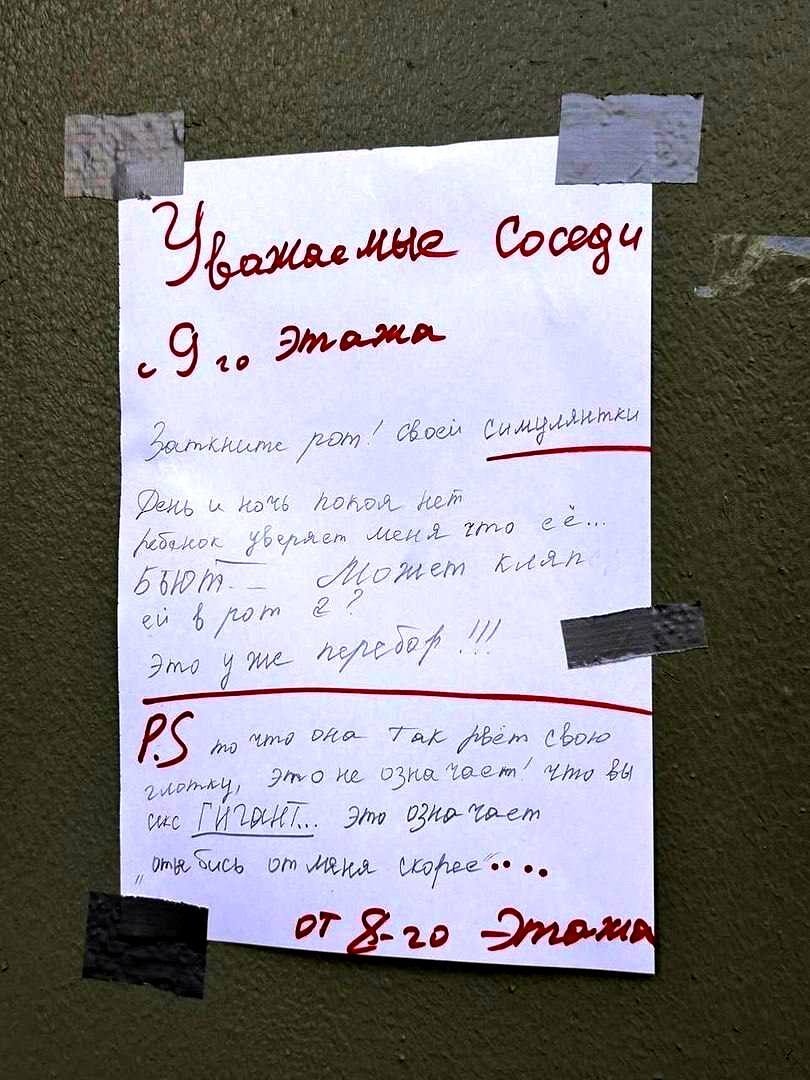 Уважаемые соседи
с 9 го этажа
Заткните рот! своей симулянтки
День и ночь покоя нет
ребёнок уверяет меня что её...
БЪЮТ... Может кляп
ей в рот а?
Это уже перебор!!!
P.S то что она так рвёт свою
глотку, это не означает! что вы
секс ГИГАНТ... это означает
"отъебись от меня скорее"....
от 8-го Этажа